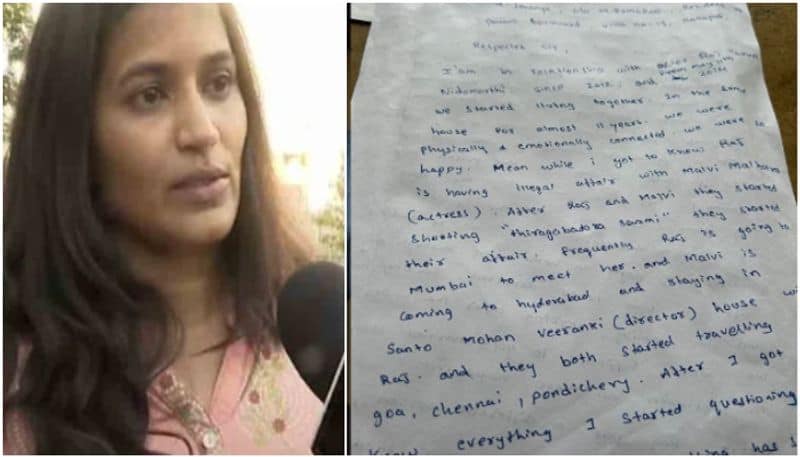 Respected Sir,
I'am in relationship with Raj
Nidamarthi since 2012, and
we started living together. In the same
house for almost 11 years. we were
physically & emotionally connected. we were so
happy. Mean while i got to know Raj
is having illegal affair with Malvi Malhotra
(actress). After Raj and Malvi they started
Shooting "thiragabadara saami" they started
their affair. Frequently Raj is going to
Mumbai to meet her. and Malvi is
coming to hyderabad and staying in
Santo Mohan Veeranki (director) house
Raj. and they both started travelling
goa, chennai, pondichery. After I got
know everything I started questioning
has